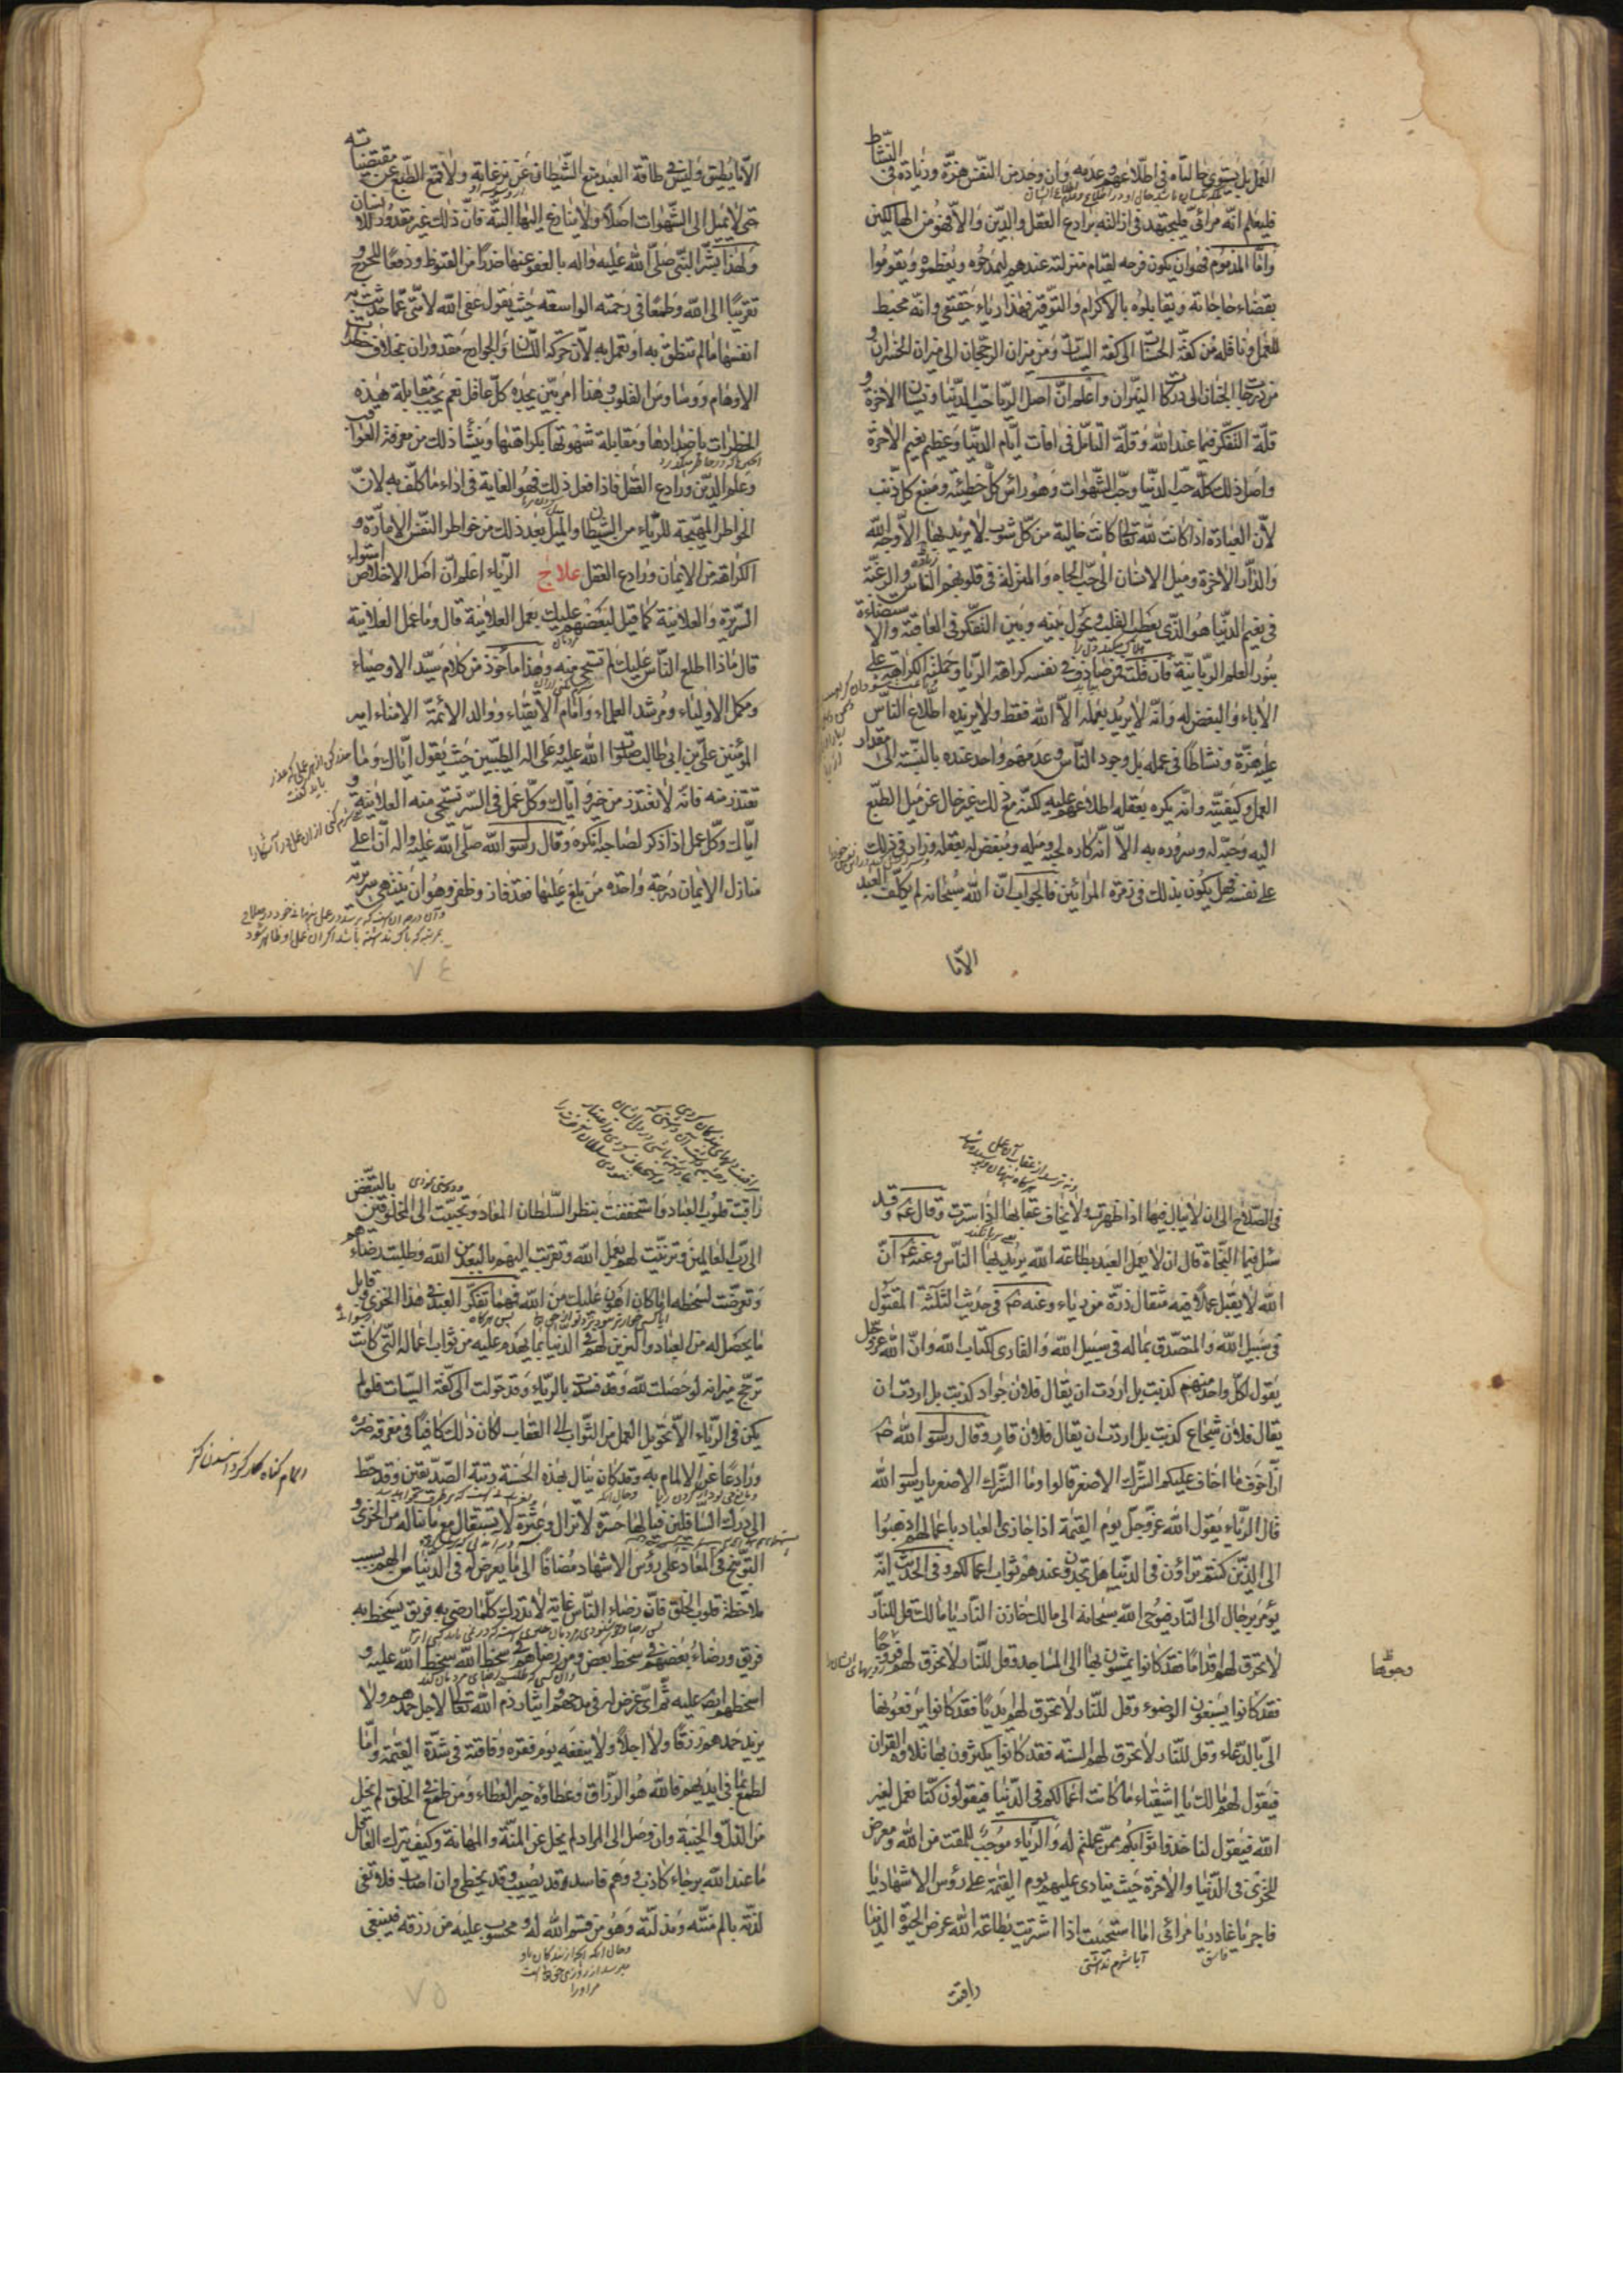 العمل بل يستوي حالتاه في اطلاعهم وعدمه وان وجد من النفس هزة وزيادة في النشاط
فليعلم انه مرائي فليجتهد في ازالته برادع العقل والدين والا فهو من الهالكين
واما المذموم فهو ان يكون فرحه لقيام منزلته عندهم ليمدحوه ويعظموه ويقوموا
بقضاء حاجاته ويقابلوه بالاكرام والتوقير فهذا رياء حقيقي وانه محبط
للعمل وناقله من كفة الحسنات الى كفة السيئات ومن ميزان الرجحان الى ميزان الخسران و
من درجات الجنان الى دركات النيران واعلم ان اصل الريا حب الدنيا ونسيان الاخرة و
قلة التفكر فيما عند الله وقلة التأمل في افات ايام الدنيا وعظيم نعيم الاخرة
واصل ذلك كله حب الدنيا وحب الشهوات وهو راس كل خطيئة ومنبع كل ذنب
لان العبادة اذا كانت لله تعالى كانت خالية من كل شوب لا يريد بها الا وجه الله
والدار الاخرة وميل الانسان الى حب الجاه والمنزلة في قلوب الناس والرغبة
في نعيم الدنيا هو الذي يعطب القلب ويحول بينه وبين التفكر في العاقبة والاستضاءة
بنور العلم الربانية فان قلت فمن صادف في نفسه كراهة الريا وحملته الكراهة على
الاباء والبغض له وانه لا يريد بعمله الا الله فقط ولا يريده اطلاع الناس
عليه هزة ونشاطا في عمله بل وجود الناس وعدمهم واحد عنده بالنسبة الى مقدار
العمل وكيفيته وانه يكره بعقله اطلاعهم عليه لكنه مع ذلك غير خال عن ميل الطبع
اليه وحبه له وسروره به الا انه كاره لحبه وميله ومبغض له بعقله وزار في ذلك
على نفسه فهل يكون بذلك في زمرة المرائين فالجواب ان الله سبحانه لم يكلف العبد
الا ما
الا ما يطيق وليس في طاقة العبد منع الشيطان عن نزغاته ولا قمع الطبع عن مقتضياته
حتى لا يميل الى الشهوات اصلا ولا ينازع اليها البتة فان ذلك غير مقدور للانسان
ولهذا بشر النبي صلى الله عليه واله بالعفو عنها حذرا من القنوط ودفعا للحرج و
تقريبا الى الله وطمعا في رحمته الواسعة حيث يقول عفى الله لامتي عما حدثت به
انفسها ما لم تنطق به او تعمل به لان حركة اللسان والجوارح مقدوران بخلاف خطرات
الاوهام ووساوس القلوب وهذا امر بين يجده كل عاقل نعم يجب مقابلة هذه
الخطرات باضدادها ومقابلة شهوتها بكراهتها وينشأ ذلك من معرفة العواقب
وعلم الدين ورادع العقل فاذا فعل ذلك فهو الغاية في اداء ما كلف به لان
الخواطر المهيجة للرياء من الشيطان والميل بعد ذلك من خواطر النفس الامارة و
الكراهة من الايمان ورادع العقل علاج الرياء اعلم ان اصل الاخلاص استواء
السريرة والعلانية كما قيل لبعضهم عليك بعمل العلانية قال وما عمل العلانية
قال ماذا اطلع الناس عليك لم تستحي منه وهذا مأخوذ من كلام سيد الاوصياء
ومكمل الاولياء ومرشد العلماء وامام الاتقياء ووالد الائمة الامناء امير
المؤمنين علي بن ابي طالب صلوات الله عليه وعلى اله الطيبين حيث يقول اياك وما
تعتذر منه فانه لا تعتذر من خير واياك وكل عمل في السر تستحي منه العلانية و
اياك وكل عمل اذا ذكر لصاحبه انكره وقال رسول الله صلى الله عليه واله ان اعلى
منازل الايمان درجة واحدة من بلغ عليها فقد فاز وظفر وهو ان ينتهي بسريرته
٧٤
في الصلاح الى ان لا يبالي فيها اذا ظهرت ولا يخاف عقابها اذا استرت وقال ع وقد
سئل فيما النجاة قال ان لا يعمل العبد بطاعة الله يريد بها الناس وعنه ع ان
الله لا يقبل عملا فيه مثقال ذرة من رياء وعنه ص في حديث الثلثة المقتول
في سبيل الله والمتصدق بماله في سبيل الله والقارى كتاب الله وان الله عز وجل
يقول لكل واحد منهم كذبت بل اردت ان يقال فلان جواد كذبت بل اردت ان
يقال فلان شجاع كذبت بل اردت ان يقال فلان قار وقال رسول الله ص
ان اخوف ما اخاف عليكم الشرك الاصغر قالوا وما الشرك الاصغر يا رسول الله
قال الرياء يقول الله عز وجل يوم القيمة اذا جازى العباد باعمالهم اذهبوا
الى الذين كنتم تراؤن في الدنيا هل تجدون عندهم ثواب اعمالكم وفي الحديث انه
يؤمر برجال الى النار فيوحي الله سبحانه الى مالك خازن النار يا مالك قل للنار
لا تحرق لهم اقداما فقد كانوا يمشون بها الى المساجد وقل للنار لا تحرق لهم وجوها
فقد كانوا يسبغون الوضوء وقل للنار لا تحرق لهم ايديا فقد كانوا يرفعونها
الي بالدعاء وقل للنار لا تحرق لهم السنة فقد كانوا يكثرون بها تلاوة القران
فيقول لهم مالك يا اشقياء ما كانت اعمالكم في الدنيا فيقولون كنا نعمل لغير
الله فيقول لنا خذوا ثوابكم ممن عملتم له والرياء موجب للمقت من الله ومعرض
للخزي في الدنيا والاخرة حيث ينادى عليهم يوم القيمة على رؤس الاشهاد يا
فاجر يا غادر يا مرائي اما استحييت اذا اشتريت بطاعة الله عرض الحيوة الدنيا
آيا شرم نداشتى
راقبت
وجوها
راقبت قلوب العباد واستخففت بنظر السلطان المعاد وتحببت الى المخلوقين بالتبغض
الى رب العالمين وتزينت لهم بعمل الله وتقربت اليهم بالبعد من الله وطلبت رضاءهم
وتعرضت لسخطه اما كان اهون عليك من الله فمهما تفكر العبد في هذا الخزي وقابل
ما يحصل له من العباد والتزين لهم في الدنيا بما يهدم عليه من ثواب اعماله التي كانت
ترجح ميزانه لو خصلت لله وقد فسدت بالرياء وقد حولت الى كفة السيئات فلو لم
يكن في الرياء الا تحويل العمل من الثواب الى العقاب لكان ذلك كافيا في معرفة ضرره
ورادعا عن الالمام به وقد كان ينال بهذه الحسنة رتبة الصديقين وقد حط
الى درك السافلين فيا لها حسرة لا تزال وعثرة لا تستقال مع ما يناله من الخزي و
التوبيخ في المعاد على رؤس الاشهاد مضافا الى ما يعرض له في الدنيا من الهم بسبب
ملاحظة قلوب الخلق فان رضاء الناس غاية لا تدرك كلما رضي به فريق يسخط به
فريق ورضاء بعضهم في سخط بعض ومن رضاهم في سخط الله سخط الله عليه و
اسخطهم ايضا عليه ثم اي غرض له في مدحهم وايثار ذم الله تعالى لاجل حمدهم ولا
يزيد حمدهم رزقا ولا اجلا ولا ينفعه يوم فقره وفاقته في شدة القيمة واما
لطمع بما في ايديهم فالله هو الرزاق وعطاؤه خير العطاء ومن طمع في الخلق لم يخل
من الذل والخيبة وان وصل الى المراد لم يخل عن المنة والمهانة وكيف يترك العاقل
ما عند الله برجاء كاذب ووهم فاسد وقد يصيب وقد يخطي وان اصاب فلا تفى
لذته بالم منته ومذلته وهو من قسم الله له ومحسوب عليه من رزقه فينبغي
٧٥